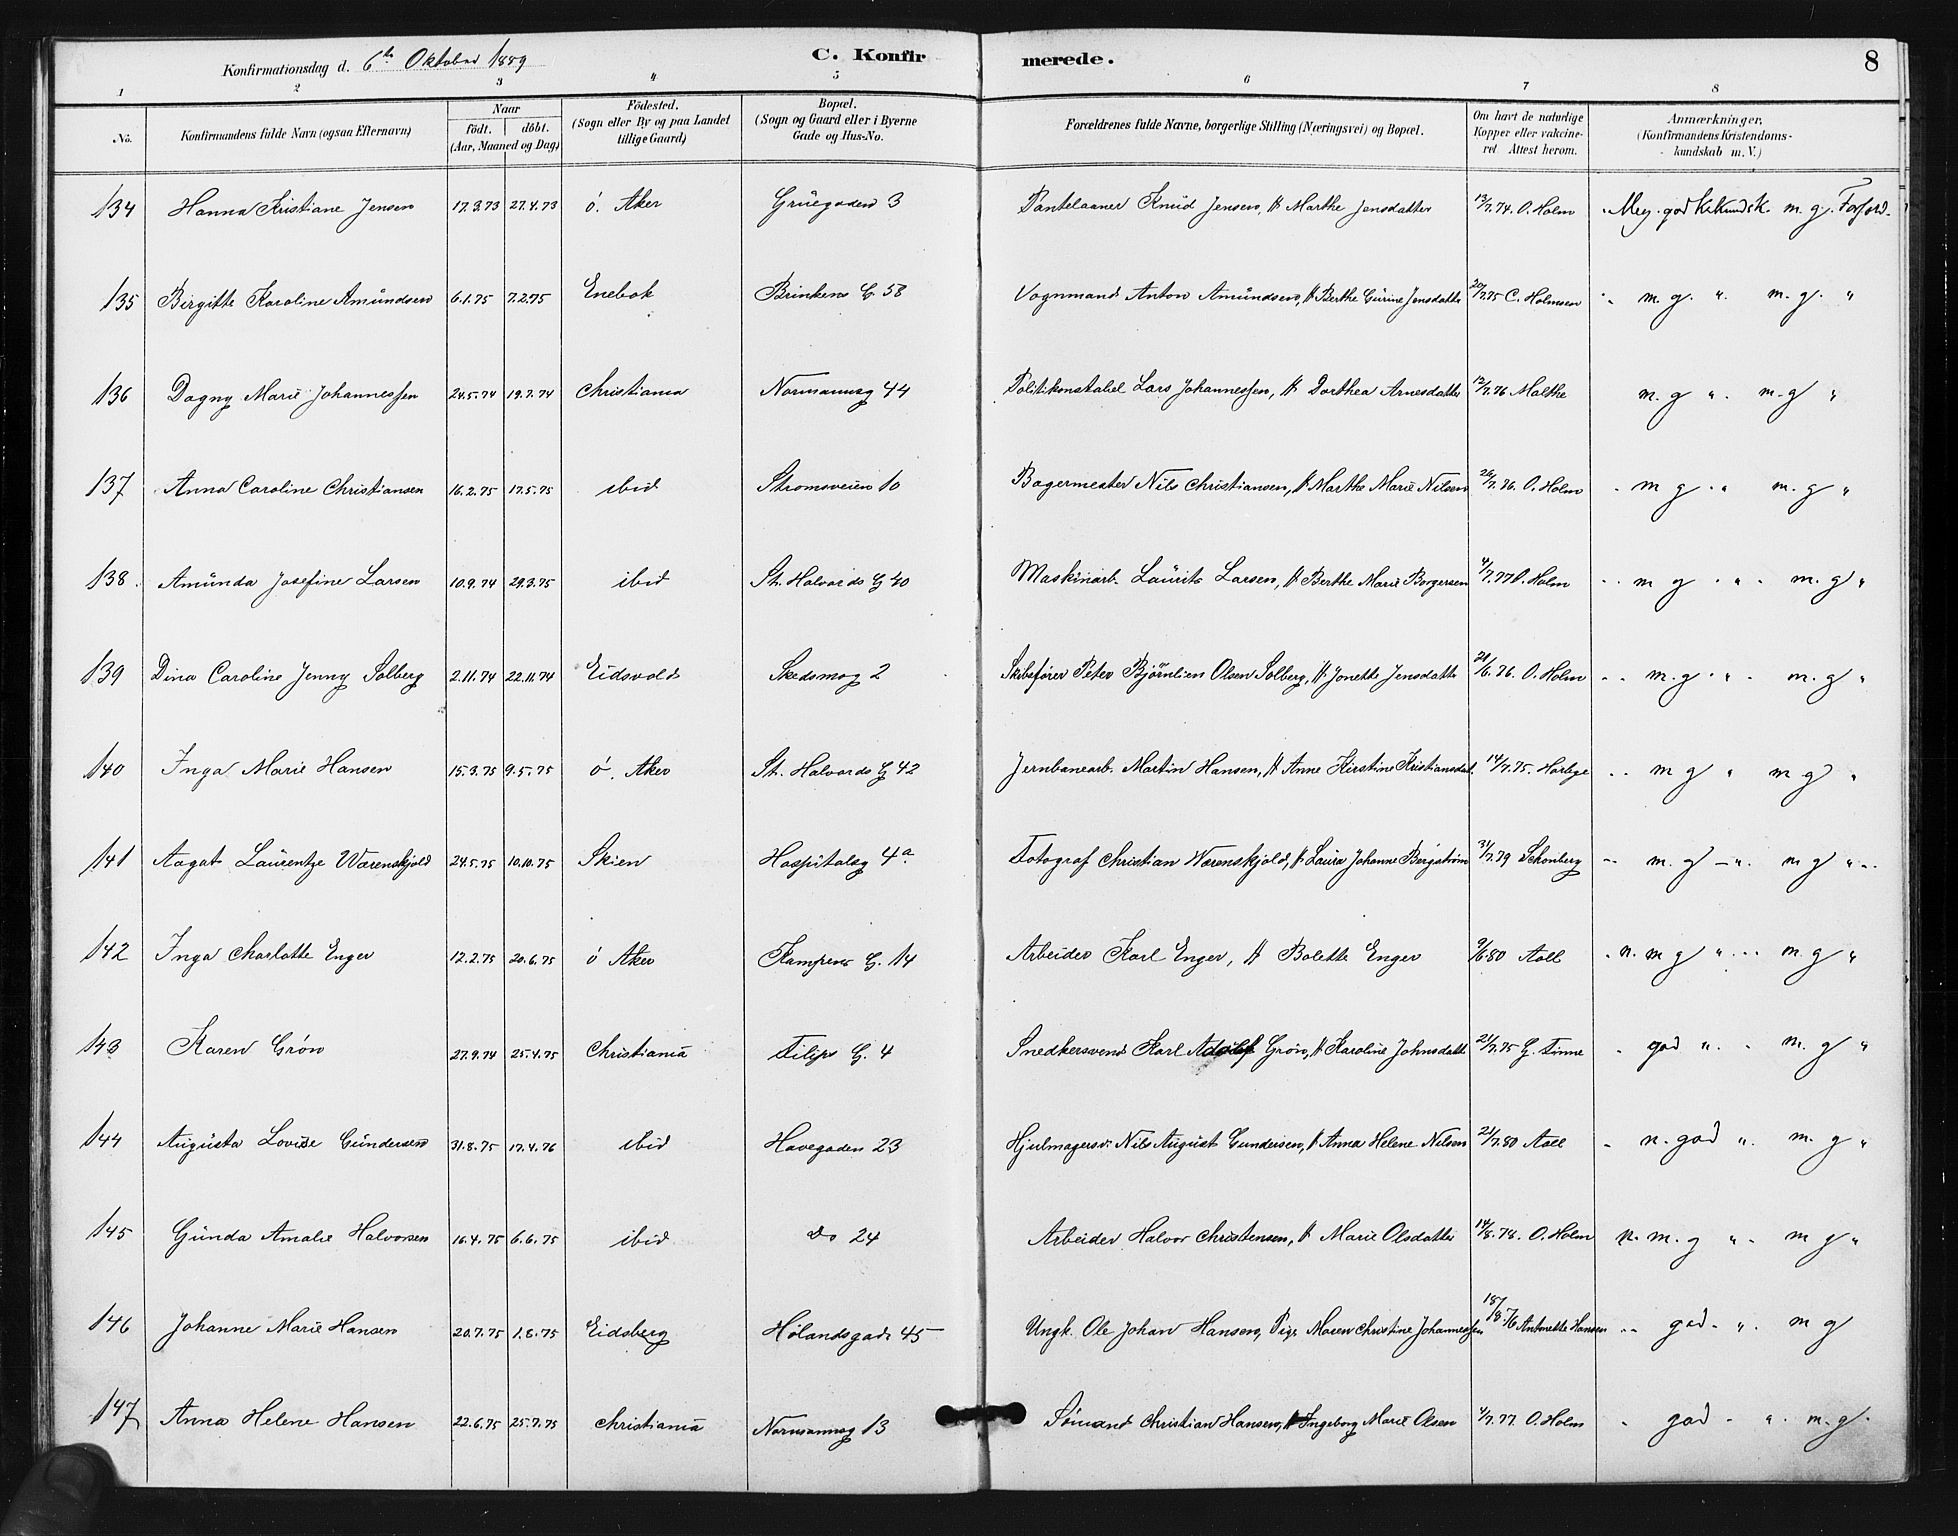 Konfirmationsdag d. 6te Oktober 1889 C. Konfirmerede. 8
1 2 3 4 5 6 7 8
No. Konfirmandens fulde Navn (ogsaa Efternavn) Naar födt. döbt. (Aar, Maaned og Dag) Födested. (Sogn eller By og paa Landet tillige Gaard) Bopæl. (Sogn og Gaard eller i Byerne Gade og Hus-No. Forældrenes fulde Navne, borgerlige Stilling (Næringsvei) og Bopæl. Om havt de naturlige Kopper eller vakcineret. Attest herom. Anmærkninger, (Konfirmandens Kristendomskundskab m. V.)
134 Hanna Kristiane Jensen 17.3.73 27.4.73 ö. Aker Grüegaden 3 Pantelaaner Knud Jensen, H. Marthe Jensdatter 13/7.74. O. Holm Meg. god Kr.kundsk. m. g. Forhold.
135 Birgitte Karoline Amundsen 6.1.75 7.2.75 Enebak Brinkens G. 58 Vognmand Anton Amundsen, H. Berthe Gurine Jensdatter 20/7.75 C. Holmsen m. g. " m. g. "
136 Dagny Marie Johannessen 24.5.74 19.7.74 Christiania Normannsg 44 Politikonstabel Lars Johannessen, H. Dorthea Arnesdatter 12/7.76 Malthe m. g " m. g "
137 Anna Caroline Christiansen 16.2.75 17.5.75 ibid Strømsveien 10 Bagermester Nils Christiansen, H. Marthe Marie Nilsen 26/7.76. O. Holm m g " m. g "
138. Amunda Josefine Larsen 10.9.74 29.3.75 ibid St. Halvards G 40 Maskinarb. Laurits Larsen, H. Berthe Marie Borgersen 4/7.77 O. Holm m g " m. g "
139 Dina Caroline Jenny Solberg 2.11.74 22.11.74 Eidsvold Skedsmog 2 Skibsfører Peter Bjørnlien Olsen Solberg, H. Jonette Jensdatter 20/6.76. O. Holm m. g " m. g "
140 Inga Marie Hansen 15.3.75 9.5.75 ö. Aker St. Halvards G 42 Jernbanearb. Martin Hansen, H. Anne Kirstine Kristiansdat. 14/7.75. Horbye m g " m g "
141 Aagat Laurentze Wærenskjold 24.5.75 10.10.75 Skien Hospitalsg 4a Fotograf Christian Wærenskjold, H. Laura Johanne Bergstrøm 31/7.79 Schønberg m. g " m g "
142 Inga Charlotte Enger 12.2.75 20.6.75 ö Aker Kampens G. 14 Arbeider Karl Enger, H. Bolette Enger 9/6.80 Aall n. m g " m. g "
143 Karen Grön 27.9.74 25.4.75 Christiania Filips G. 4 Snedkersvend Karl Adolf Grön, H. Karoline Johnsdatt 21/7.75 G. Finne god " m. g "
144 Augusta Lovise Gundersen 31.8.75 17.4.76 ibid Havegaden 23 Hjulmagersv. Nils August Gundersen, H. Anna Helene Nilsen 21/7.80 Aall n. god " m. g "
145 Gunda Amalie Halvorsen 16.4.75 6.6.75 ibid do 24 Arbeider Halvor Christensen, H. Marie Olsdatter 14/8.78. O. Holm n. m. g " m g "
146 Johanne Marie Hansen 20.7.75 1.8.75 Eidsberg Hølandsgade 45 Ungk. Ole Johan Hansen, Pige Maren Christine Johannessen 18/8.76 Antonette Hansen god " m g
147 Anna Helene Hansen 22.6.75 25.7.75 Christiania Normannsg 13 Sömand Christian Hansen, H. Ingeborg Marie Olsen 4/7.77. O. Holm god " m. g.